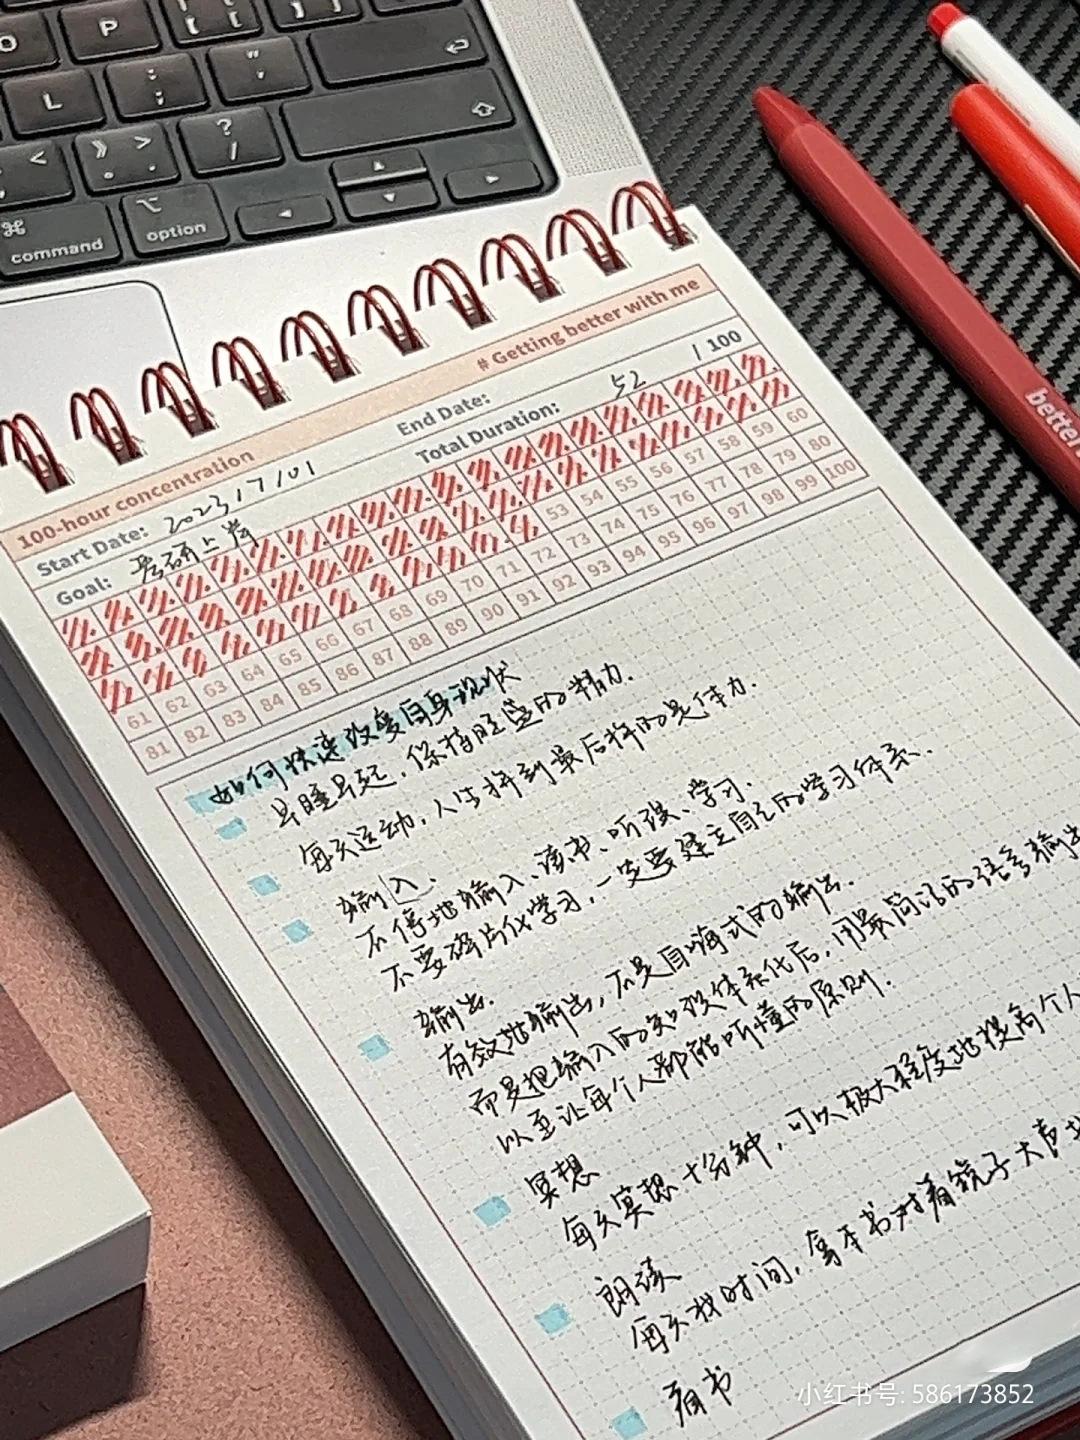 O
P
L
command
option
# Getting better with me
100-hour concentration
Start Date: 2023/7/01
End Date:
Goal: 考研上岸
Total Duration: 52 / 100
53 54 55 56 57 58 59 60
61 62 63 64 65 66 67 68 69 70 71 72 73 74 75 76 77 78 79 80
81 82 83 84 85 86 87 88 89 90 91 92 93 94 95 96 97 98 99 100
如何快速改变自身现状
早睡早起,保持旺盛的精力.
每天运动,人生拼到最后拼的是体力.
输入.
不停地输入、读书、听课、学习.
不要碎片化学习,一定要建立自己的学习体系.
输出.
有效地输出,不是自嗨式的输出.
而是把输入的知识体系化后,用最简洁的语言输出
以至让每个人都能听懂的原则.
冥想
每天冥想十分钟,可以极大程度地提高个人
朗读
每天找时间,拿本书对着镜子大声地
看书
better
小红书号: 586173852